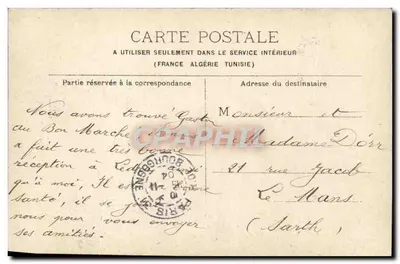 CARTE POSTALE
A UTILISER SEULEMENT DANS LE SERVICE INTÉRIEUR
(FRANCE ALGÉRIE TUNISIE)
Partie réservée à la correspondance
Adresse du destinataire
Nous avons trouvé Gaston
au Bon Marché
a fait une très bonne
réception à
qu'à moi, Il est
santé, il se
nous pour vous envoyer
ses amitiés.
Monsieur et
Madame Dörr
21 rue Jacob
Le Mans
(Sarth)
PARIS
BOURGOGNE
CPAPHIL